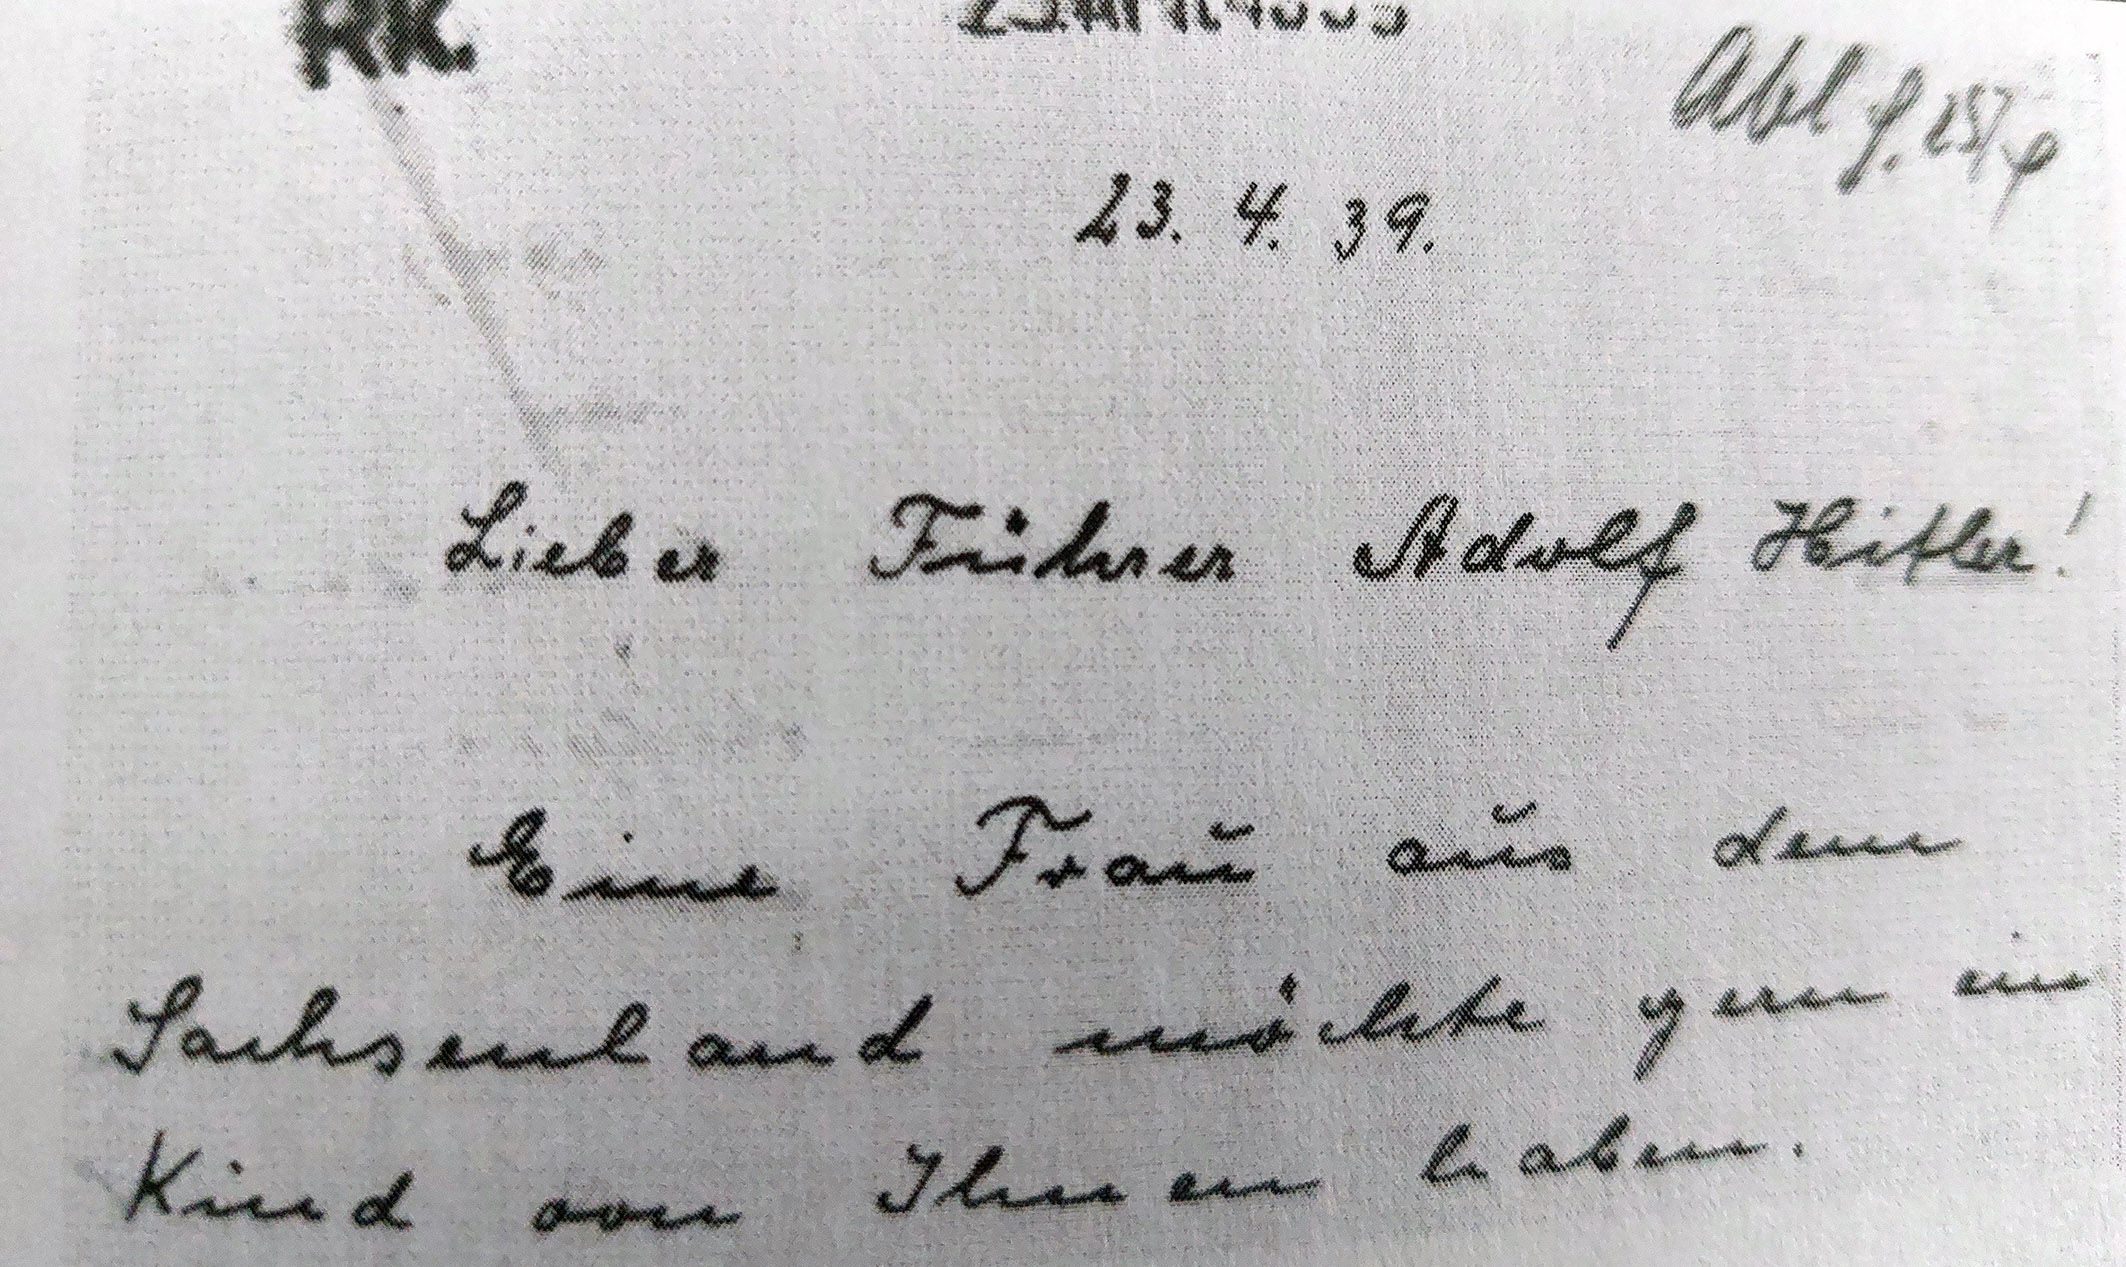 RK.
23. 4. 39.
Lieber Führer Adolf Hitler!
Eine Frau aus dem
Sachsenland möchte gern ein
Kind von Ihnen haben.